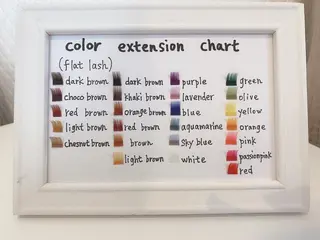 color extension chart
(flat lash)
dark brown
choco brown
red brown
light brown
chesnut brown
dark brown
khaki brown
orange brown
red brown
brown
light brown
purple
lavender
blue
aquamarine
sky blue
white
green
olive
yellow
orange
pink
passionpink
red